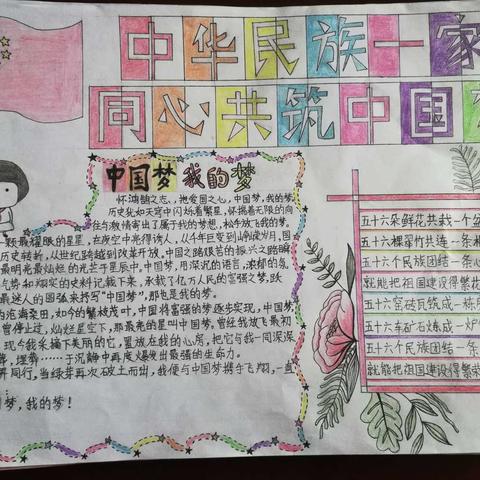 中华民族一家
同心共筑中国
中国梦 我的梦
怀鸿鹄之志，抱爱国之心，中国梦，我的梦，
历史犹如天穹中闪烁着繁星，怀揣着无限的向
往与激情寄出了属于我的梦想，松手放飞我的梦。
一颗最耀眼的星星，在夜空中亮得诱人，从4年巨变到峥嵘岁月，国
历史转折，从世纪跨越到改革开放，中国之路艰苦的振兴之路瞬
最明亮最灿烂的光芒于星辰中，中国梦，用深沉的语言，浓郁的
气势和翔实的史料记载下来，承载了亿万人民的富强之梦，跃
最迷人的圆弧来抒写“中国梦”，那也是我的梦。
的沧海桑田，如今的繁枝茂叶，中国将富强的梦逐步实现，中国梦，
曾停止过，灿烂星空下，那最亮的星叫中国梦，曾经我放飞最初
现今我来摘下美丽的它，置放在我的心房，把它与我一同深深
埋葬……于沉静中再度爆发出最强的生命力。
同行，当绿芽再次破土而出，我便与中国梦携手飞翔，一直
梦，我的梦！
五十六朵鲜花共栽一个盆
五十六棵翠竹共连一条
五十六个民族团结一条心
就能把祖国建设得繁花
五十六窑砖瓦筑成一栋
五十六车矿石炼成一炉
五十六个民族团结一条
就能把祖国建设得繁荣